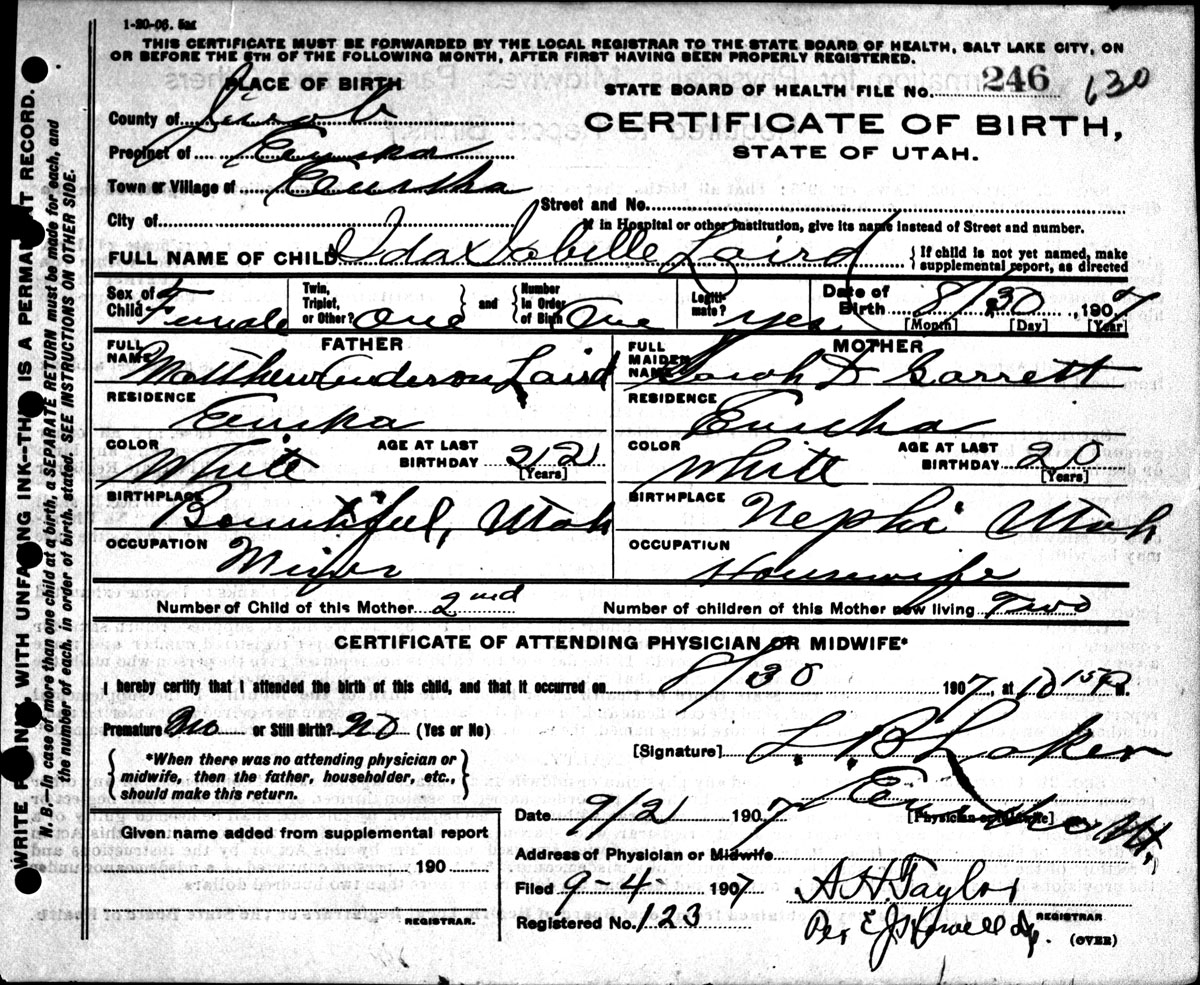 1-20-06. 5M
THIS CERTIFICATE MUST BE FORWARDED BY THE LOCAL REGISTRAR TO THE STATE BOARD OF HEALTH, SALT LAKE CITY, ON
OR BEFORE THE 5TH OF THE FOLLOWING MONTH, AFTER FIRST HAVING BEEN PROPERLY REGISTERED.
PLACE OF BIRTH
STATE BOARD OF HEALTH FILE NO. 246 130
County of Juab
CERTIFICATE OF BIRTH,
STATE OF UTAH.
Precinct of Eureka
Town or Village of Eureka
Street and No.
City of
If in Hospital or other Institution, give its name instead of Street and number.
FULL NAME OF CHILD Ida Isabelle Laird { If child is not yet named, make supplemental report, as directed
Sex of Child Female Twin, Triplet, or Other? One } and { Number in Order of Birth One Legitimate? yes Date of Birth 8/30 1907
[Month] [Day] [Year]
FATHER MOTHER
FULL NAME Matthew Anderson Laird FULL MAIDEN NAME Sarah D Garrett
RESIDENCE Eureka RESIDENCE Eureka
COLOR White AGE AT LAST BIRTHDAY 22 [Years] COLOR White AGE AT LAST BIRTHDAY 20 [Years]
BIRTHPLACE Bountiful, Utah BIRTHPLACE Nephi Utah
OCCUPATION Miner OCCUPATION Housewife
Number of Child of this Mother 2nd Number of children of this Mother now living Two
CERTIFICATE OF ATTENDING PHYSICIAN OR MIDWIFE*
I hereby certify that I attended the birth of this child, and that it occurred on 8/30 1907, at 10 15 P.M.
Premature No or Still Birth? No (Yes or No)
[Signature]
{ *When there was no attending physician or midwife, then the father, householder, etc., should make this return. }
[Physician or Midwife]
Date 9/2 1907
Given name added from supplemental report
Address of Physician or Midwife Eureka Ut.
190
Filed 9 4 1907 A H Taylor
REGISTRAR.
Registered No. 123 Per E J Howell Dp. REGISTRAR
(OVER)
WRITE PLAINLY, WITH UNFADING INK—THIS IS A PERMANENT RECORD.
N. B.—In case of more than one child at a birth, a SEPARATE RETURN must be made for each, and
the number of each, in order of birth, stated. SEE INSTRUCTIONS ON OTHER SIDE.